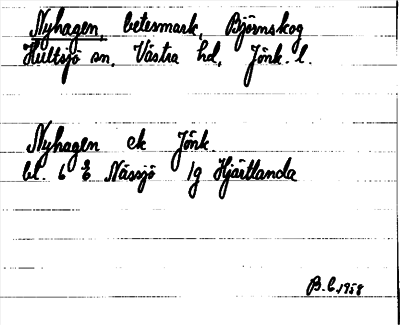 Nyhagen, betesmark, Björnskog
Hultsjö sn. Västra hd, Jönk. l.
Nyhagen ek Jönk.
bl. 6 E Nässjö 1g Hjärtlanda
B. C. 1958